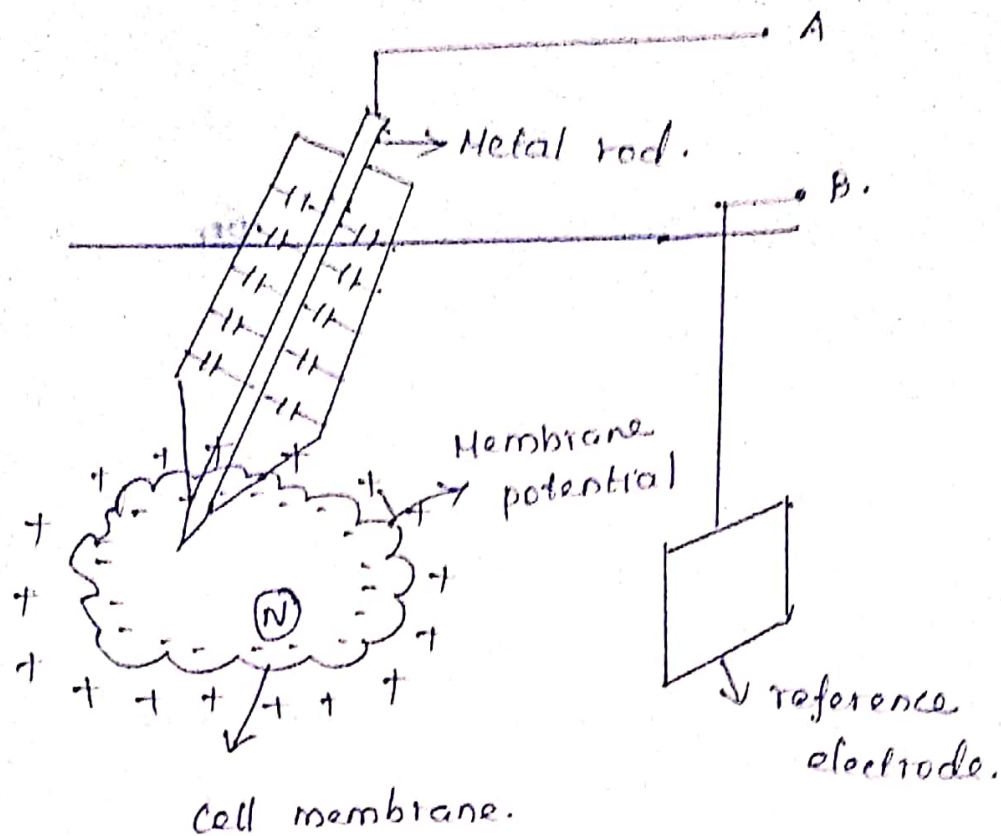 A
Metal rod.
B.
Membrane
potential
N
reference
electrode.
Cell membrane.